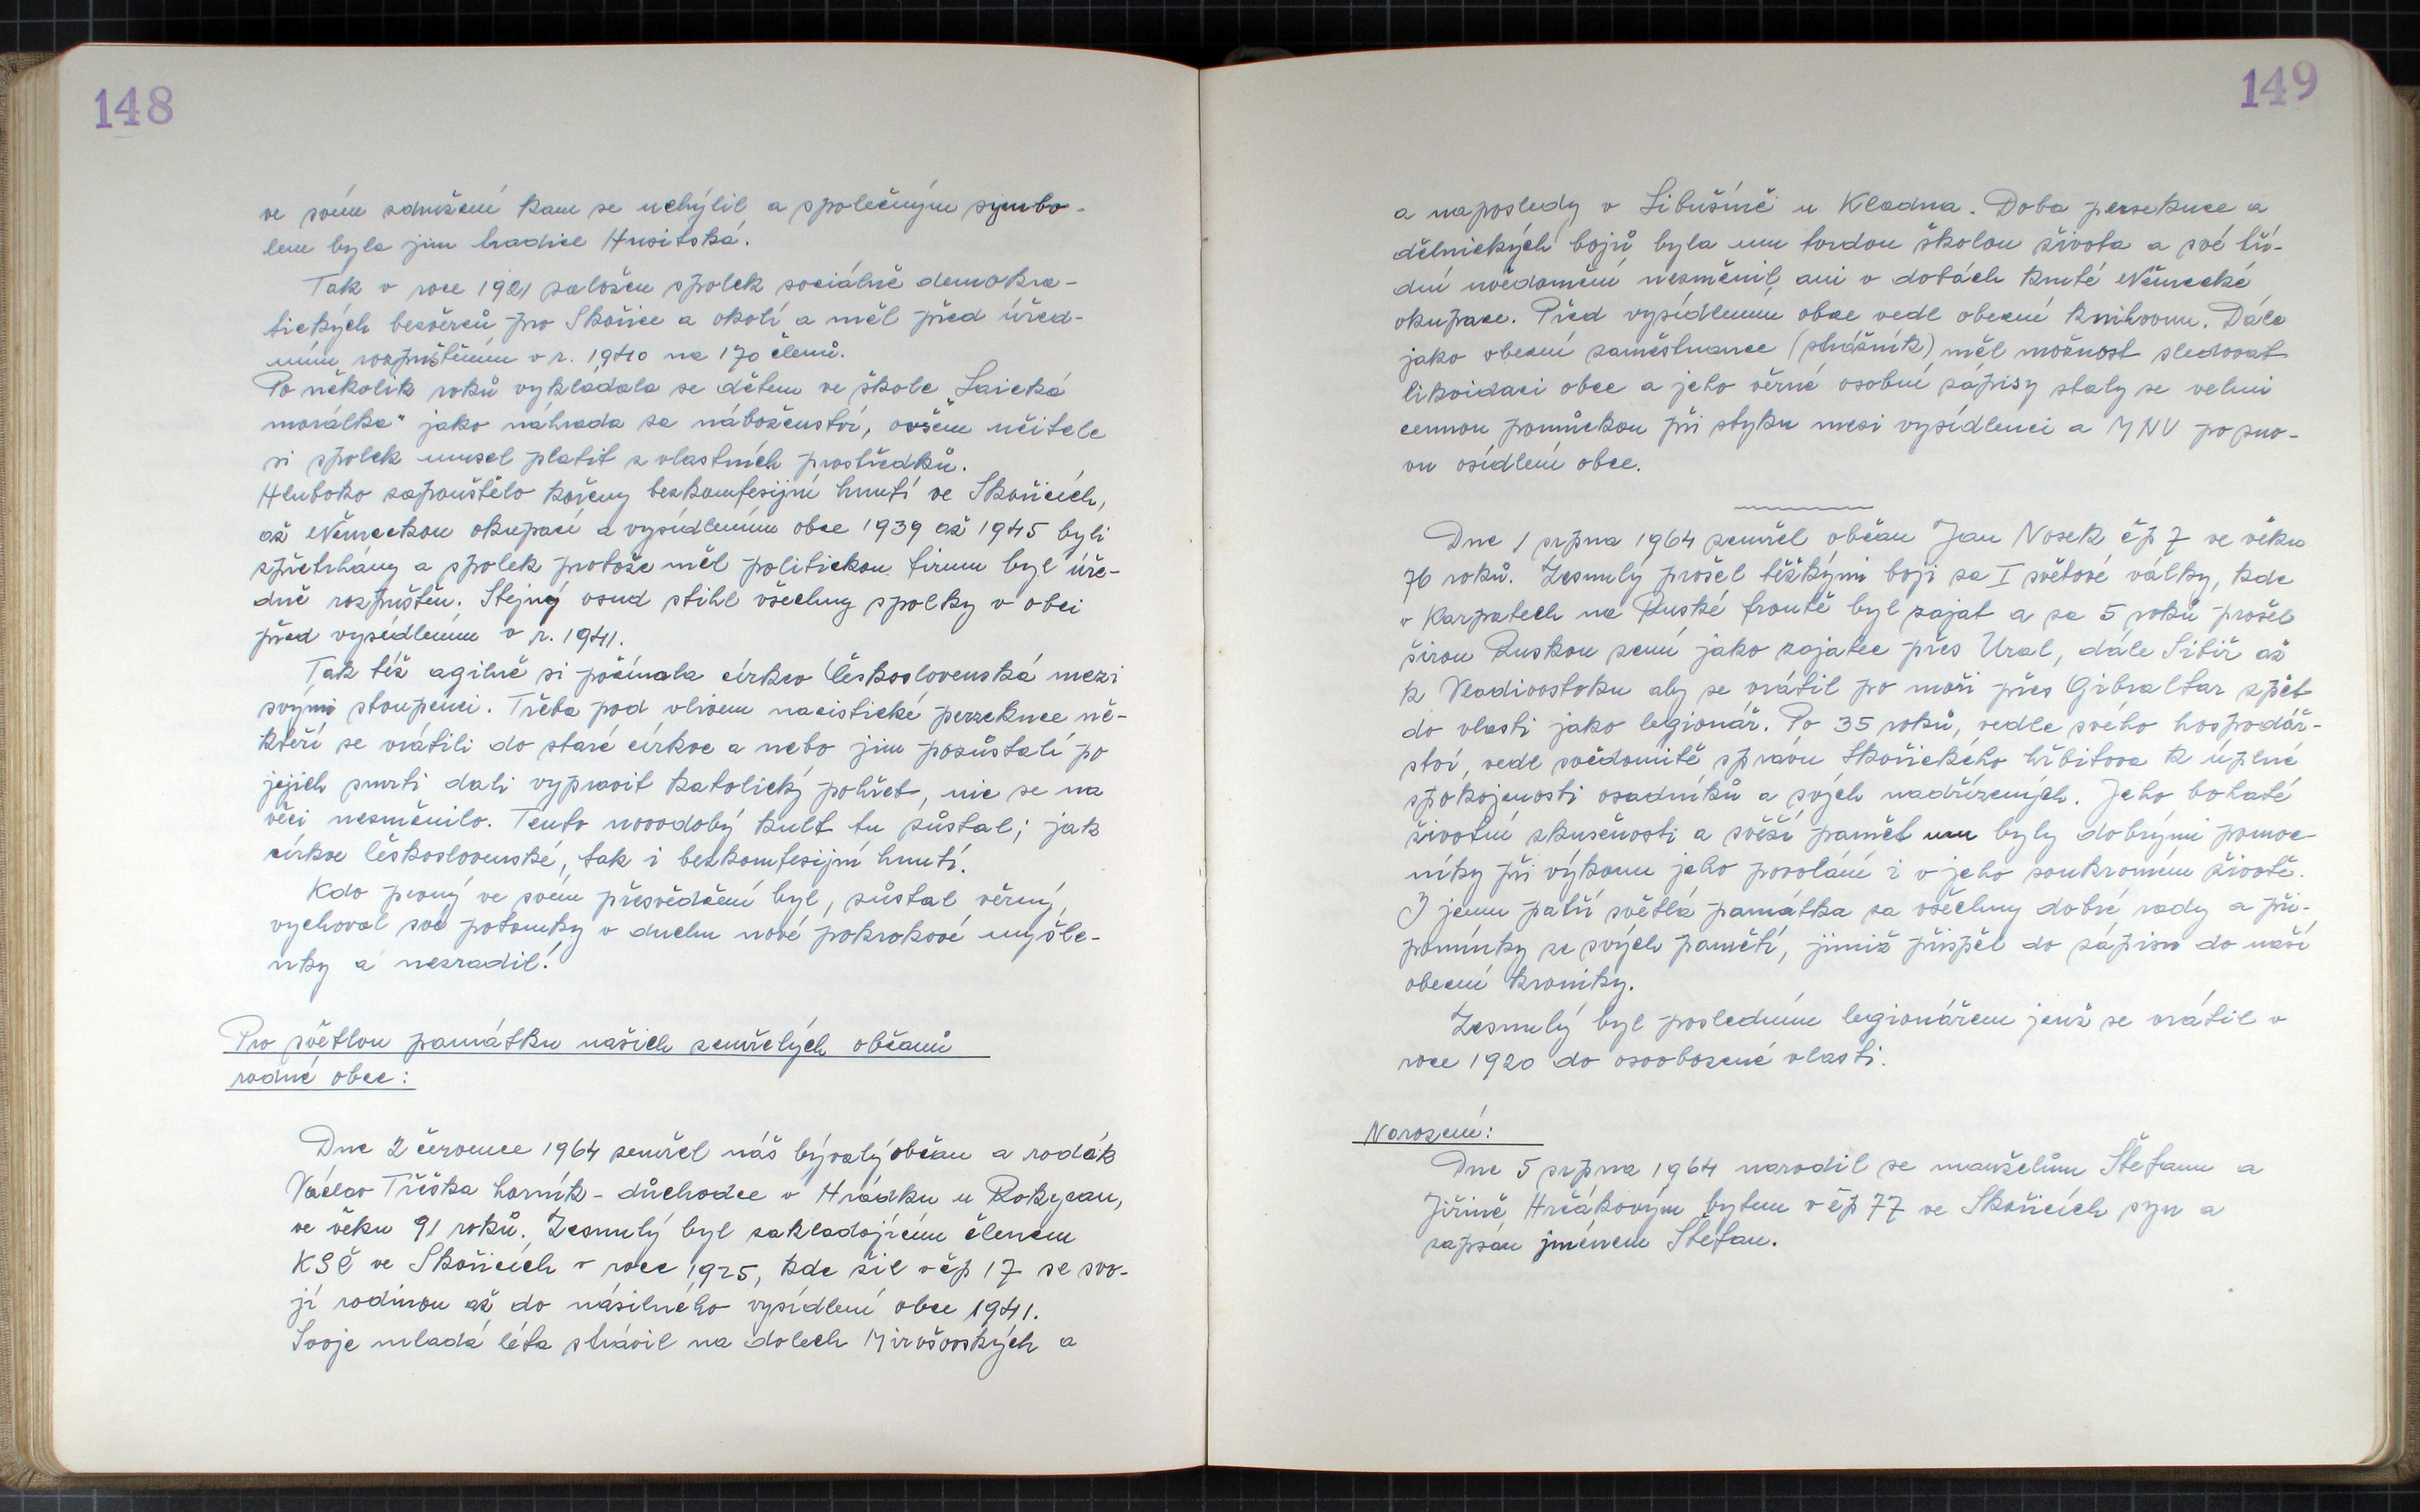 148
ve svém sdružení kam se uchýlil a společným symbo-
lem byla jim tradice Husitská.
Tak v roce 1921 založen spolek sociálně demokra-
tických bezvěrců pro Skořice a okolí a měl před úřed-
ním rozpuštěním v r. 1940 na 170 členů.
Po několik roků vykladala se dětem ve škole „Laická
morálka" jako náhrada za náboženství, ovšem učitele
si spolek musel platit z vlastních prostředků.
Hluboko zapouštělo kořeny bezkomfesijní hnutí ve Skořicích,
až Německou okupací a vysídlením obce 1939 až 1945 byli
zpřetrhány a spolek protože měl politickou firmu byl úře-
dně rozpuštěn. Stejný osud stihl všechny spolky v obci
před vysídlením v r. 1941.
Tak též agilně si počínala církev Československá mezi
svými stoupenci. Třeba pod vlivem nacistické perzekuce ně-
kteří se vrátili do staré církve a nebo jim pozůstalí po
jejich smrti dali vypravit katolický pohřeb, nic se na
věci nezměnilo. Tento novodobý kult tu zůstal; jak
církve československé, tak i bezkomfesijní hnutí.
Kdo pevný ve svém přesvědčení byl, zůstal věrný,
vychoval své potomky v duchu nové pokrokové myšle-
nky a nezradil!
Pro světlou památku našich zemřelých občanů
rodné obce:
Dne 2 července 1964 zemřel náš bývalý občan a rodák
Václav Tříska horník - důchodce v Hrádku u Rokycan,
ve věku 91 roků. Zesnulý byl zakladajícím členem
KSČ ve Skořicích v roce 1925, kde žil v čp 17 se svo-
jí rodinou až do násilného vysídlení obce 1941.
Svoje mladá léta strávil na dolech Mirošovských a
149
a naposledy v Libušíně u Kladna. Doba persekuce a
dělnických bojů byla mu tvrdou školou života a své tří-
dní uvědomění nezměnil ani v dobách kruté Německé
okupace. Před vysídlením obce vedl obecní knihovnu. Dále
jako obecní zaměstnanec (strážník) měl možnost sledovat
likvidaci obce a jeho věrné osobní zápisy staly se velmi
cennou pomůckou při styku mezi vysídlenci a MNV po zno-
vu osídlení obce.
Dne 1 srpna 1964 zemřel občan Jan Nosek čp 7 ve věku
76 roků. Zesnulý prošel těžkými boji za I světové války, kde
v Karpatech na Ruské frontě byl zajat a za 5 roků prošel
širou Ruskou zemí jako zajatec přes Ural, dále Sibiř až
k Vladivostoku aby se vrátil po moři přes Gibraltar zpět
do vlasti jako legionář. Po 35 roků, vedle svého hospodář-
ství, vedl svědomitě správu skořického hřbitova k úplné
spokojenosti osadníků a svých nadřízených. Jeho bohaté
životní zkušenosti a svěží paměť mu byly dobrými pomoc-
níky při výkonu jeho povolání i v jeho soukromém životě.
I jemu patří světlá památka za všechny dobré rady a při-
pomínky ze svých pamětí, jimiž přispěl do zápisu do naší
obecní kroniky.
Zesnulý byl posledním legionářem jenž se vrátil v
roce 1920 do osvobozené vlasti.
Narození:
Dne 5 srpna 1964 narodil se manželům Štefanu a
Jiřině Hrčákovým bytem v čp 77 ve Skořicích syn a
zapsán jménem Štefan.